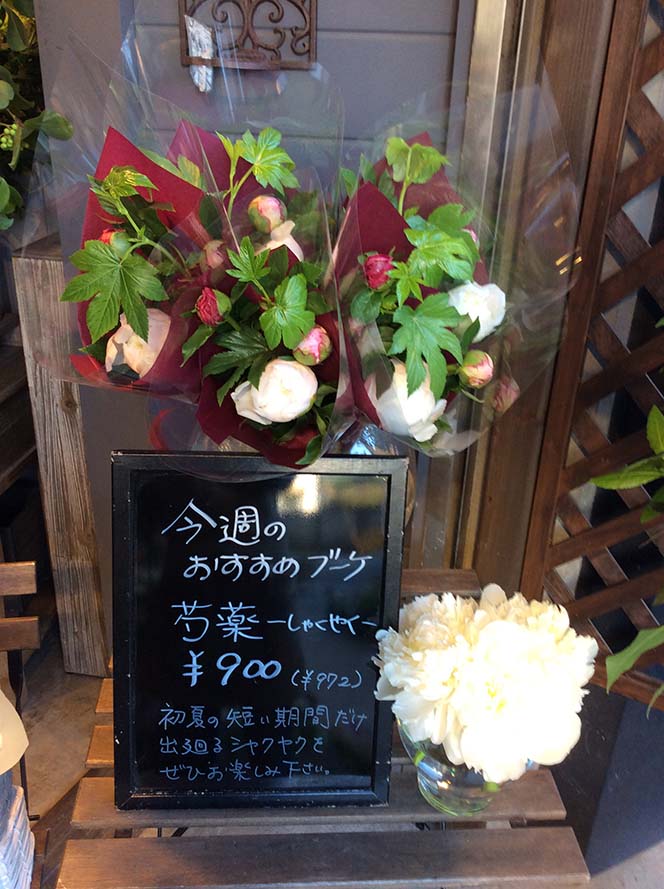 今週の
おすすめブーケ
芍薬 ーしゃくやくー
¥900 (¥972)
初夏の短い期間だけ
出廻るシャクヤクを
ぜひお楽しみ下さい。